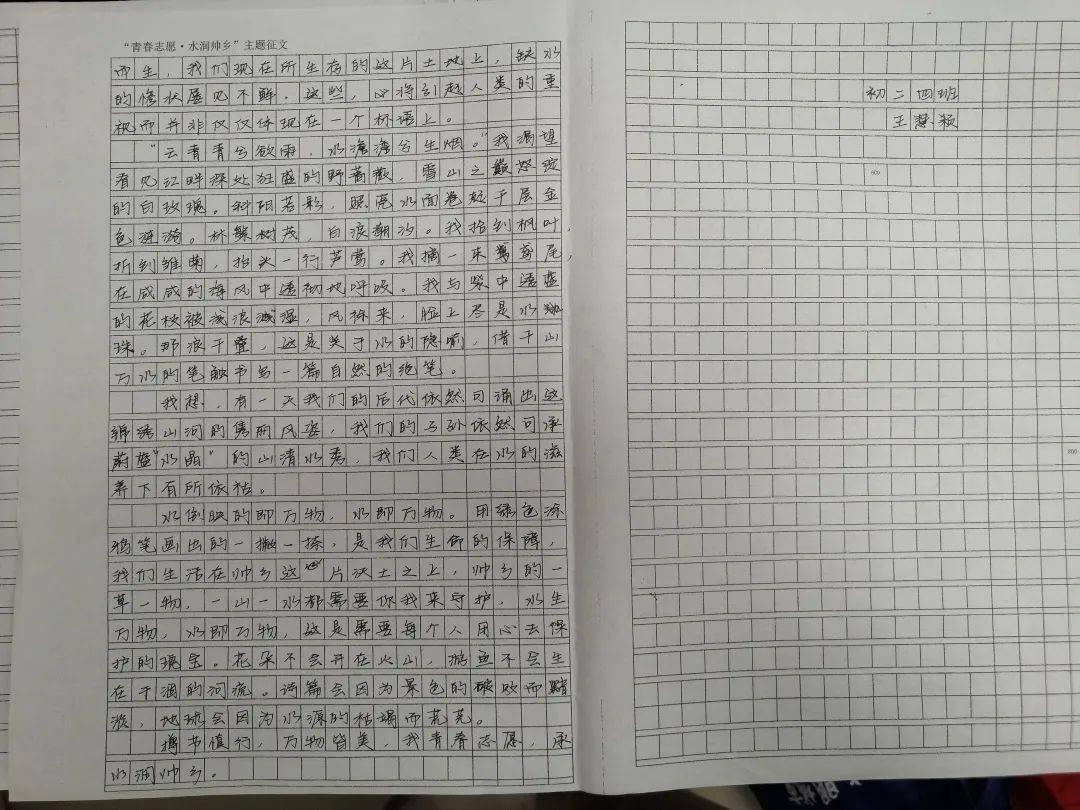 “青春志愿·水润帅乡”主题征文
而生，我们现在所生存的这片土地上，缺水
的惨状屡见不鲜。这些，必将引起人类的重
视而并非仅仅体现在一个标语上。
“云青青兮欲雨，水澹澹兮生烟。”我渴望
看见江畔深处狂盛的野蔷薇，雪山之巅怒绽
的白玫瑰。斜阳若影，照亮水面卷起千层金
色涟漪。林繁树茂，白浪翻沙。我拾到枫叶，
折到雏菊，抬头一行芦莺。我摘一束鸢尾，
在咸咸的海风中透彻地呼吸。我与紫中透蓝
的花枝被浅浪溅湿，风拂来，脸上尽是水
珠。那浪千叠，这是关于水的隐喻，借千山
万水的笔触书写一篇自然的绝笔。
我想，有一天我们的后代依然可诵出这
锦绣山河的隽丽风姿，我们的子孙依然可承
蔚蓝“水晶”的山清水秀，我们人类在水的滋
养下有所依枯。
水倒映的即万物，水即万物。用绿色涂
鸦笔画出的一撇一捺，是我们生命的保障，
我们生活在帅乡这片沃土之上，帅乡的一
草一物，一山一水都需要你我来守护，水生
万物，水即万物，这是需要每个人用心去保
护的瑰宝。花朵不会开在火山，游鱼不会生
在干涸的河流。诗篇会因为景色的破败而黯
淡，地球会因为水源的枯竭而荒芜。
撙节慎行，万物皆美，我青春志愿，承
水润帅乡。
初二四班
王慧颖
800
800